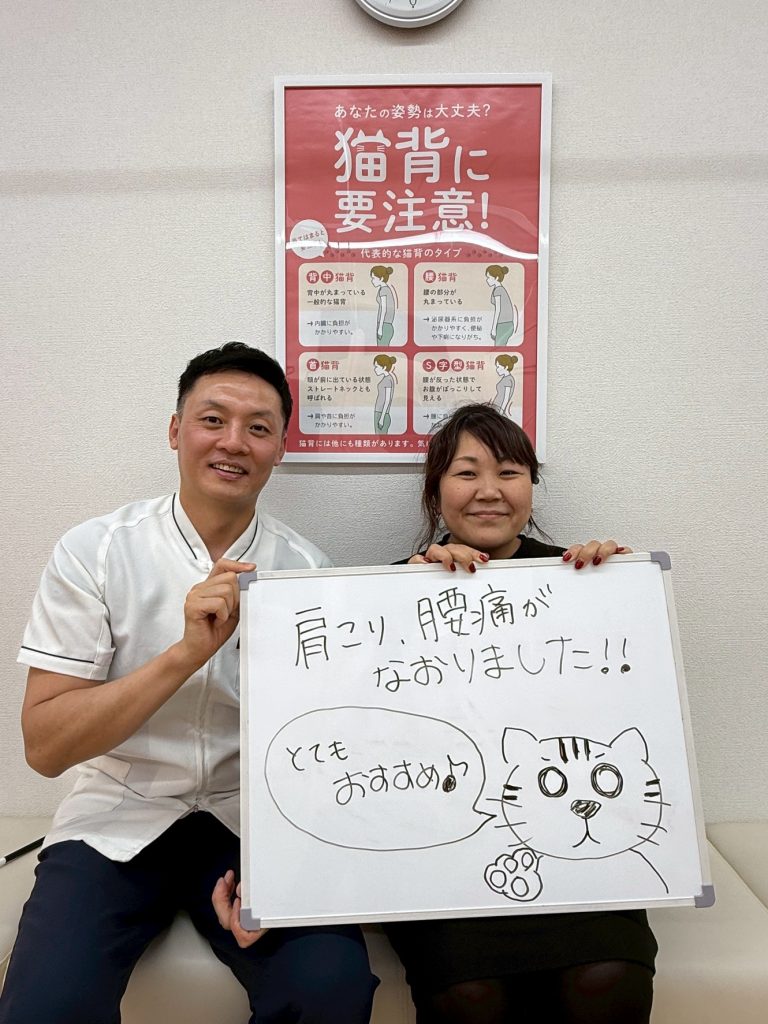 あなたの姿勢は大丈夫?
猫背に
要注意!
代表的な猫背のタイプ
背中猫背
背中が丸まっている
一般的な猫背
→内臓に負担が
かかりやすい。
腰猫背
腰の部分が
丸まっている
→泌尿器系に負担が
かかりやすく、便秘
や下痢になりがち。
首猫背
頭が前に出ている状態
ストレートネックとも
呼ばれる
→肩や首に負担が
かかりやすい。
S字型猫背
腰が反った状態で
お腹がぽっこりして
見える
猫背には他にも種類があります。
肩こり、腰痛が
なおりました!!
とても
おすすめ♪